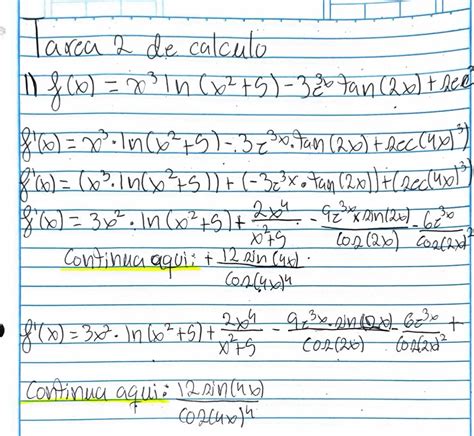 Tarea 2 de calculo
1) f(x) = x³ ln (x²+5) - 3e^3x tan(2x) + sec²
f'(x) = x³ · ln(x²+5) - 3e^3x · tan(2x) + sec(4x)³)
f'(x) = (x³ · ln(x²+5)) + (-3e^3x · tan(2x)) + (sec(4x)³)
f'(x) = 3x² · ln(x²+5) + 2x⁴/x²+5 - 9e^3x x sin(2x)/cos(2x) - 6e^3x/cos(2x)²
Continua aqui: + 12 sin(4x)/cos(4x)⁴
f'(x) = 3x² · ln(x²+5) + 2x⁴/x²+5 - 9e^3x · sin(2x)/cos(2x) - 6e^3x/cos(2x)² +
Continua aqui: 12 sin(4x)/cos(4x)⁴